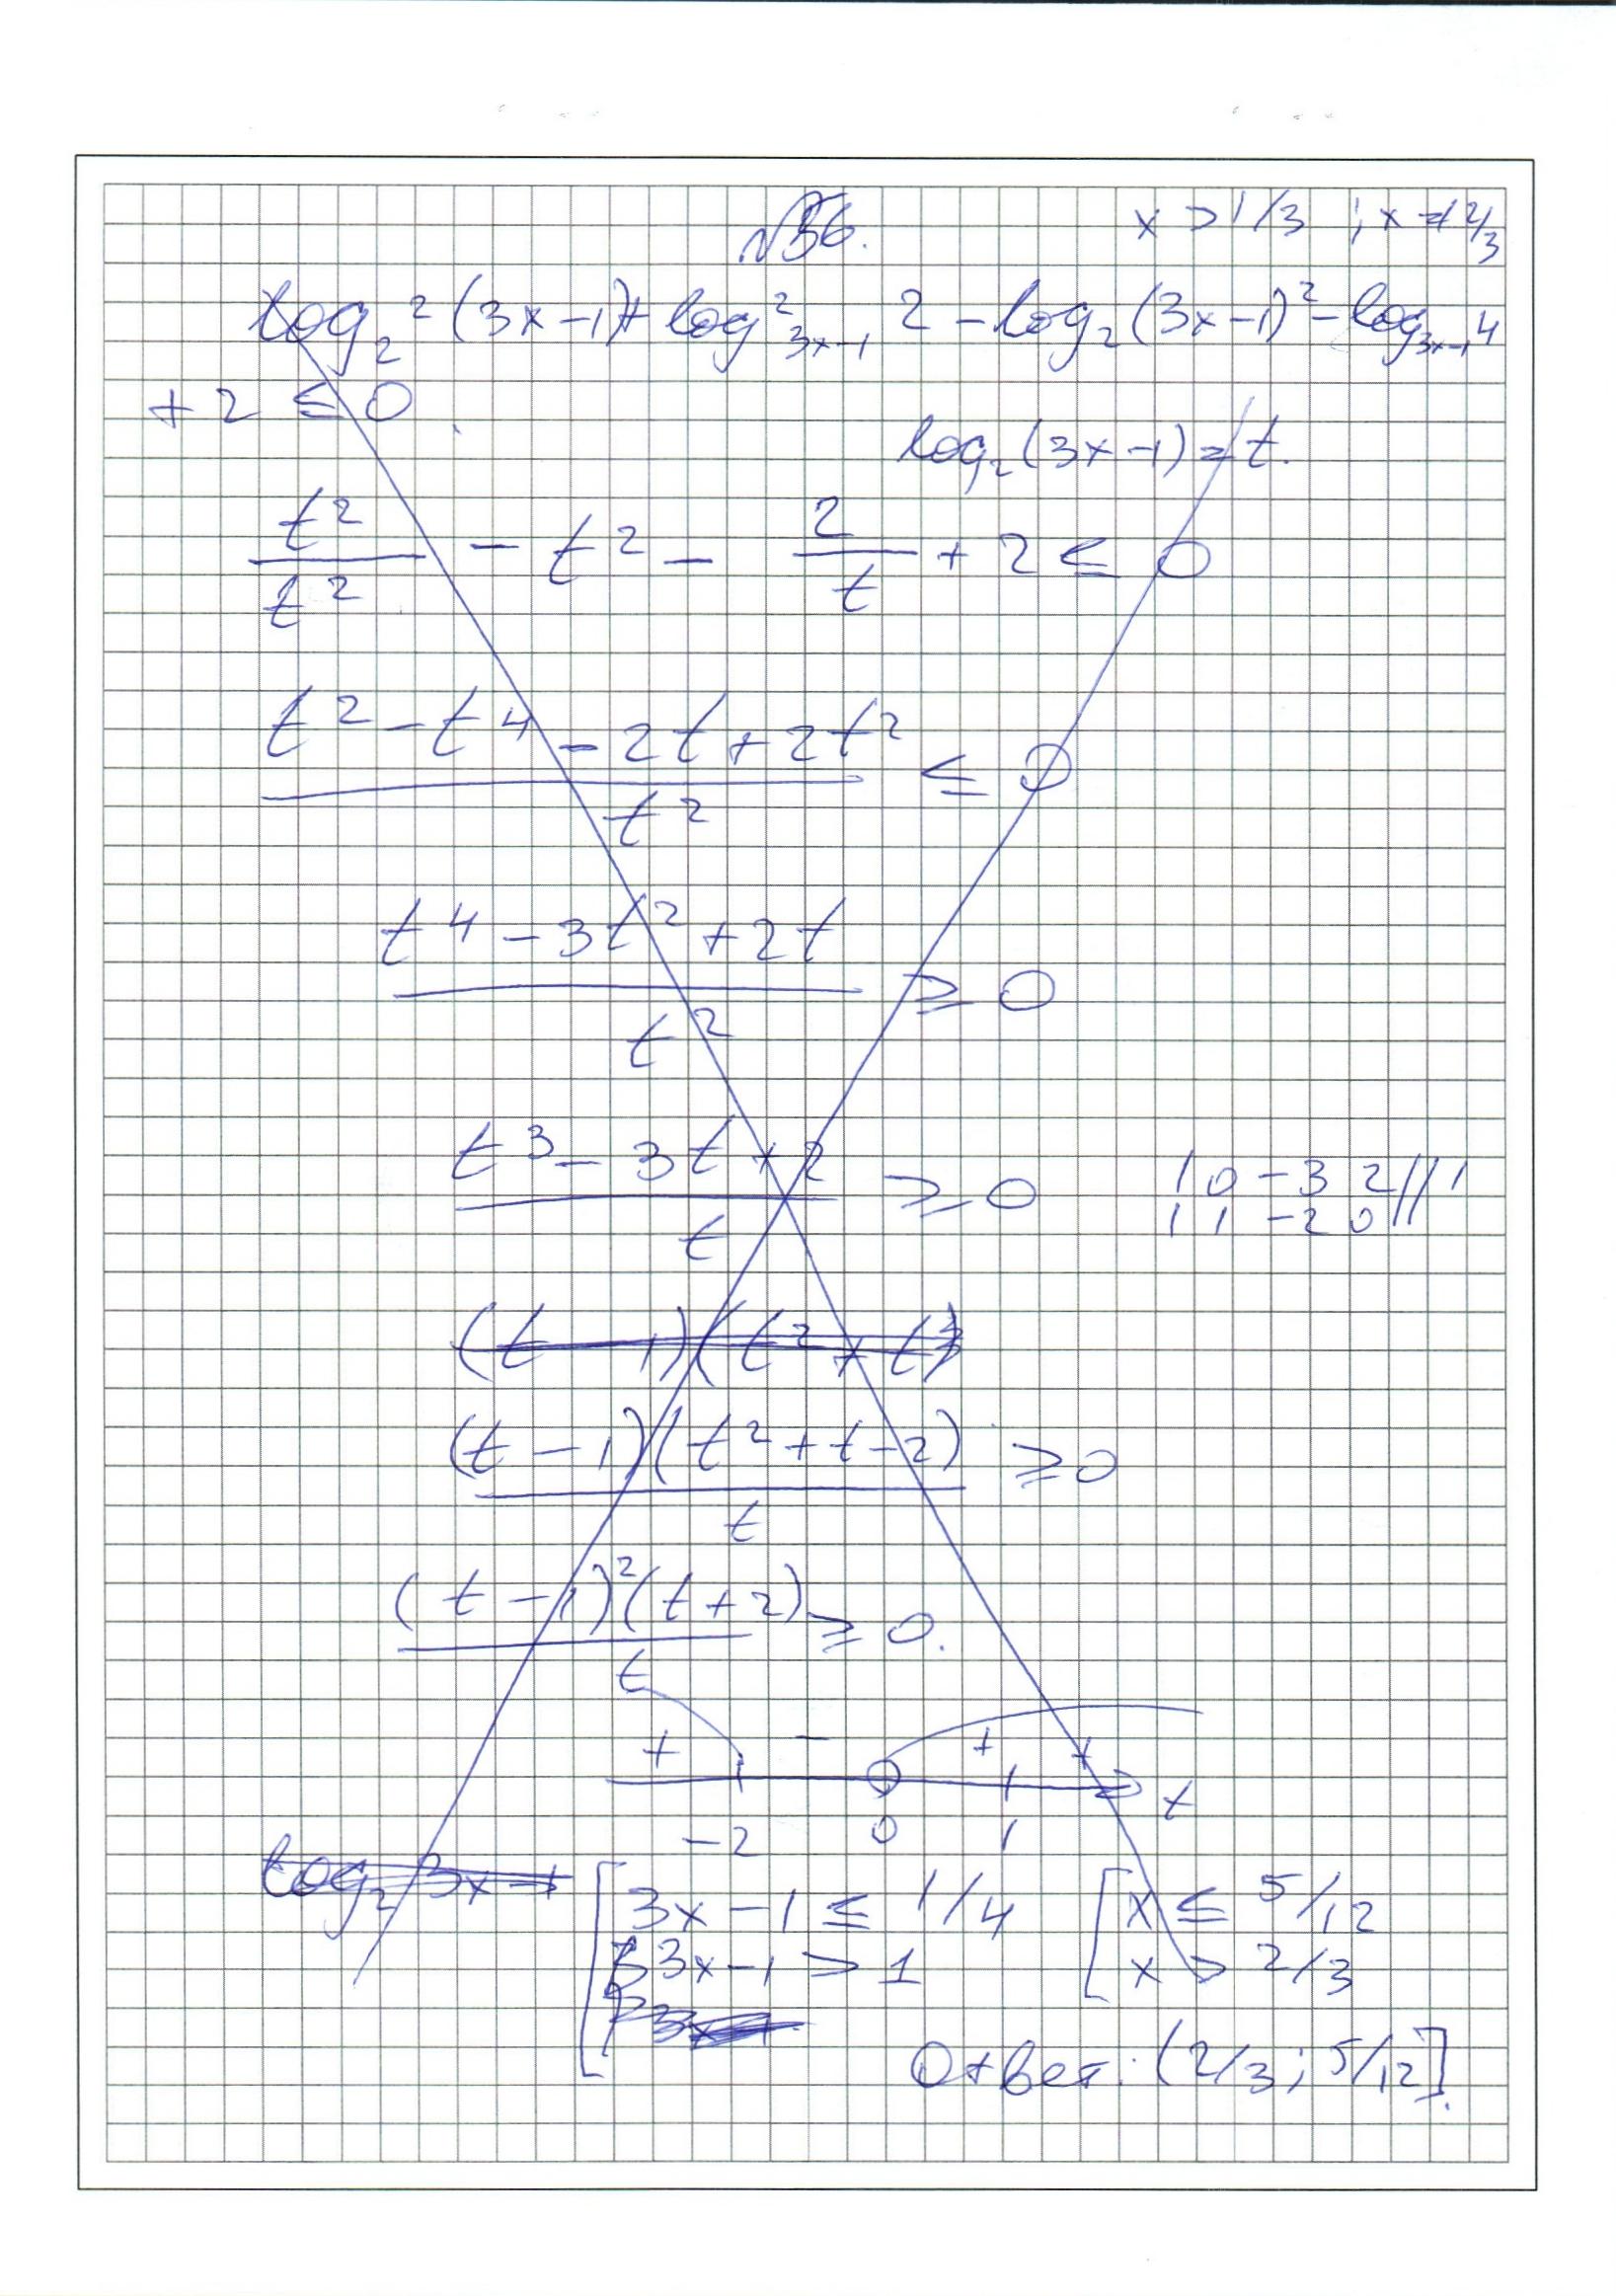 №36. x > 1/3 ; x ≠ 2/3
log₂²(3x-1)+log²₃ₓ₋₁ 2 - log₂(3x-1)² - log₃ₓ₋₁ 4
+ 2 ≤ 0
log₂(3x-1)=t.
t²/t² - t² - 2/t + 2 ≤ 0
(t² - t⁴ - 2t + 2t²)/t² ≤ 0
(t⁴ - 3t² + 2t)/t² ≥ 0
(t³ - 3t + 2)/t ≥ 0
1 0 -3 2 // 1
1 1 -2 0 //
(t - 1)(t² + t)
(t - 1)(t² + t - 2)/t ≥ 0
(t - 1)²(t + 2)/t ≥ 0.
+ - + +
-2 0 1 t
log₂ 3x-1
[ 3x - 1 ≤ 1/4 [ x ≤ 5/12
3x-1 > 1 x > 2/3
3x
Ответ: (2/3; 5/12].